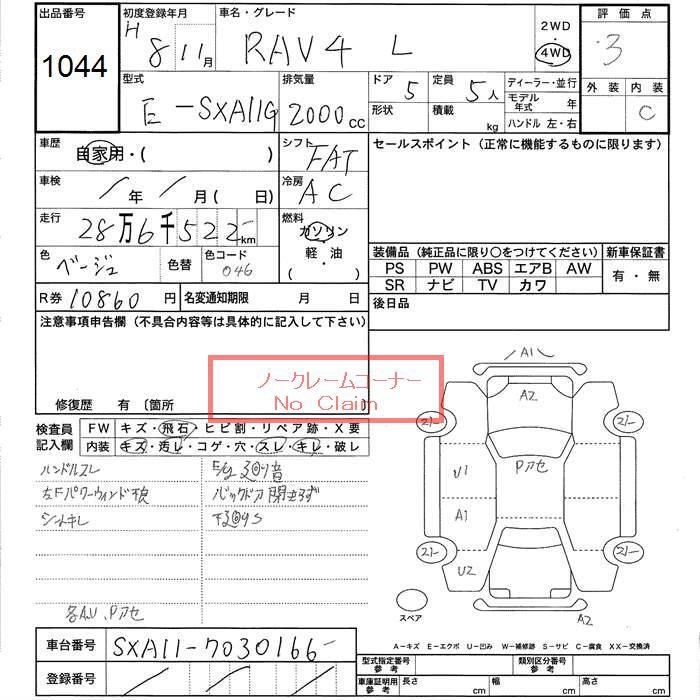 出品番号 初度登録年月 車名・グレード 2WD 評価点
1044 H 8 11月 RAV4 L 4WD 3
型式 排気量 ドア 5 定員 5人 ディーラー・並行 外装 内装
E-SXA11G 2000cc 形状 積載 kg モデル年式 年 C
ハンドル 左・右
車歴 自家用・( ) シフト FAT セールスポイント (正常に機能するものに限ります)
車検 / 年 / 月 ( 日) 冷房 AC
走行 28万6千522-km 燃料 ガソリン
軽・油
( ・ )
色 ベージュ 色替 色コード 046
装備品 (純正品に限り〇をつけてください) 新車保証書
PS PW ABS エアB AW 有・無
SR ナビ TV カワ
R券 10860円 名変通知期限 月 日 後日品
注意事項申告欄 (不具合内容等は具体的に記入して下さい)
ノークレームコーナー
No Claim
修復歴 有 〔箇所
検査員 FW キズ・飛石・ヒビ割・リペア跡・X要
記入欄 内装 キズ・汚レ・コゲ・穴・スレ・キレ・破レ
ハンドルスレ
左Fパワーウィンド不良
シートキレ
各A.U、Pアセ
A1
A2
21- 21-
U1 Pアセ
A1
21- 21-
U2
A2
スペア
A-キズ E-エクボ U-凹み W-補修跡 S-サビ C-腐食 XX-交換済
車台番号 SXA11-7030166-
登録番号
型式指定番号 参考 類別区分番号 参考
車庫証明用 参考 長さ cm 幅 cm 高さ cm